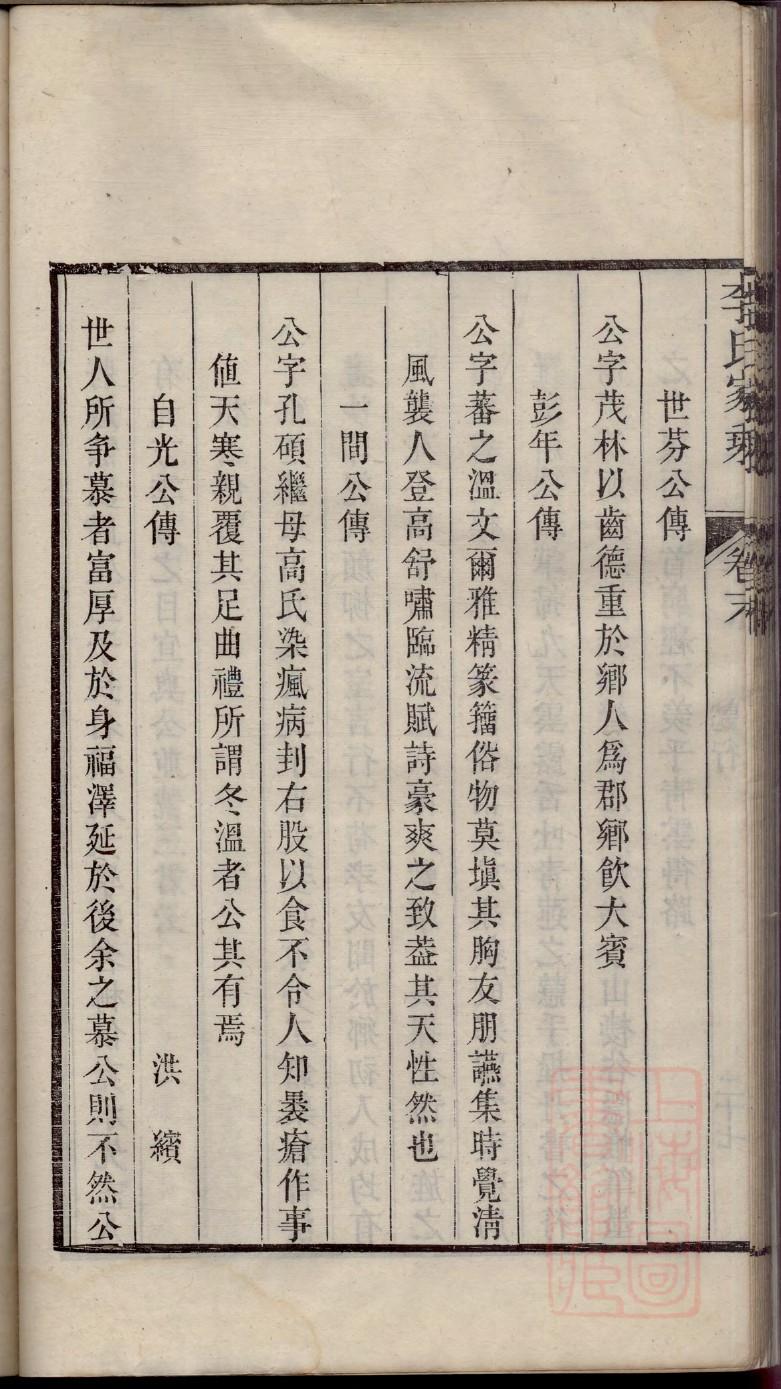 李氏家乘 卷末
世芬公傳
公字茂林以齒德重於鄉人爲郡鄉飲大賓
彭年公傳
公字蕃之溫文爾雅精篆籀俗物莫塡其胸友朋讌集時覺清
風襲人登高舒嘯臨流賦詩豪爽之致葢其天性然也
一間公傳
公字孔碩繼母高氏染瘋病刲右股以食不令人知褁瘡作事
値天寒親覆其足曲禮所謂冬溫者公其有焉
自光公傳 洪繽
世人所争慕者富厚及於身福澤延於後余之慕公則不然公